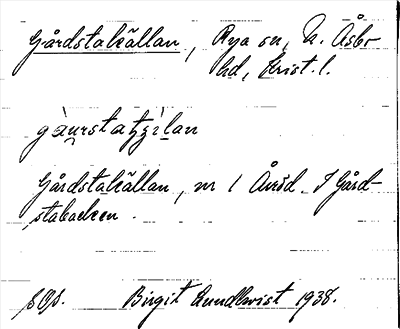 Gårdstakällan, Rya sn, N. Åsbo
hd, Krist. l.
Gårdstakällan, nr 1 Åvid. I Gård-
stabacken.
Birgit Lundkvist 1938.